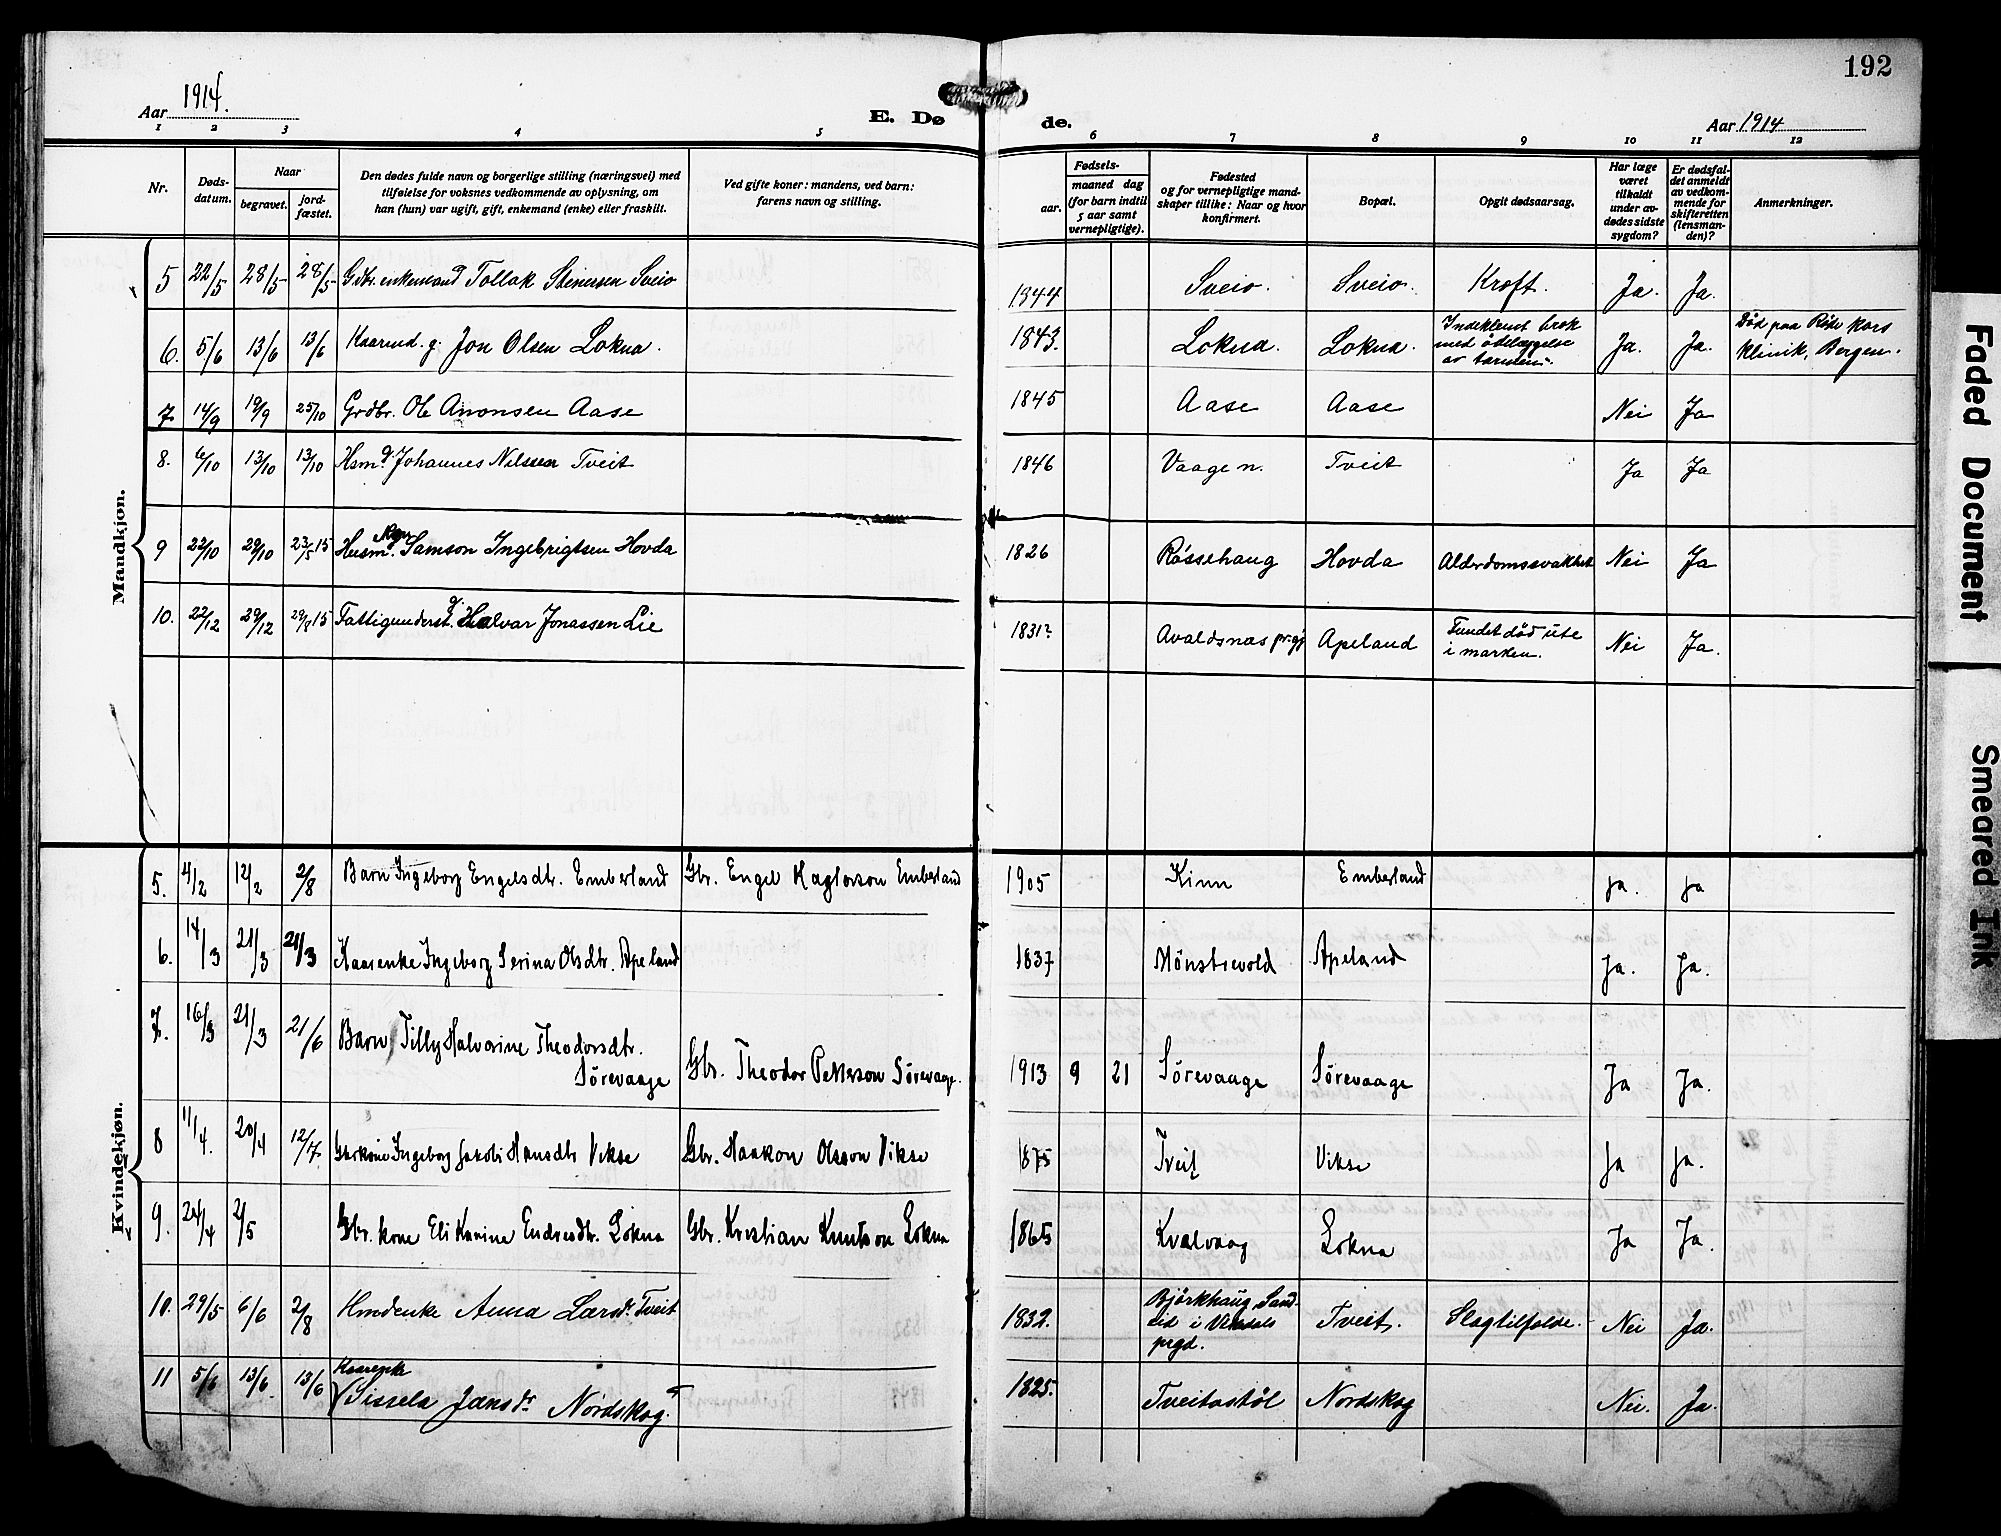 192
Aar 1914.
E. Dø de.
Aar 1914
1 2 3 4 5 6 7 8 9 10 11 12
Nr.
Døds-
datum.
Naar
begravet.
jord-
fæstet.
Den dødes fulde navn og borgerlige stilling (næringsvei) med
tilføielse for voksnes vedkommende av oplysning, om
han (hun) var ugift, gift, enkemand (enke) eller fraskilt.
Ved gifte koner: mandens, ved barn:
farens navn og stilling.
Fødsels-
aar.
maaned dag
(for barn indtil
5 aar samt
vernepligtige).
Fødested
og for vernepligtige mand-
skaper tillike: Naar og hvor
konfirmert.
Bopæl.
Opgit dødsaarsag.
Har læge
været
tilkaldt
under av-
dødes sidste
sygdom?
Er dødsfal-
det anmeldt
av vedkom-
mende for
skifteretten
(lensman-
den)?
Anmerkninger.
Mandkjøn.
5 22/5 28/5 28/5 Gdbr. enkemand Tollak Steinersen Sveio 1844 Sveio. Sveio. Kræft. Ja. Ja.
6. 5/6 13/6 13/6 Kaarmd. g. Jon Olsen Lokna. 1843. Lokna. Lokna. Indeklemt brok
med ödelæggelse
av tarmen. Ja. Ja. Död paa Röde Kors
Klinik, Bergen.
7 14/9 19/9 25/10 Grdbr. Ole Amonsen Aase 1845 Aase Aase Nei Ja
8. 6/10 13/10 13/10 Hsm. g. Johannes Nilssen Tveit 1846 Vaagen. Tveit Ja Ja
9 22/10 29/10 23/5 15 Husm. Samson Ingebrigtsen Hovda 1826 Røssehaug Hovda Alderdomssvakhet Nei Ja
10. 22/12 29/12 29/8 15 Fattigunderst. g. Halvar Jonassen Lie 1831? Avaldsnas prgj Apeland Fundet död ute
i marken. Nei Ja.
Kvindekjøn.
5. 4/2 12/2 2/8 Barn Ingeborg Engelsdtr. Emberland Gbr. Engel Emberland 1905 Kinn Emberland Ja. Ja
6. 14/3 21/3 21/3 Kaarenke Ingeborg Serina Olsdtr. Apeland 1837 Mønstrevold Apeland Ja. Ja.
7. 16/3 21/3 21/6 Barn Tilly Halvorine Theodorsdtr.
Sørevaage Gbr. Theodor Petterson Sørevaage. 1913 9 21 Sørevaage Sørevaage Ja Ja.
8 11/4. 20/4 12/7. Gbrkone Ingeborg Jakobi Hansdtr Vikse Gbr. Haakon Olsson Vikse 1875 Tveit Vikse Ja Ja.
9. 24/4 2/5 Gbr. kone Eli Karine Endresdtr. Lokna Gbr. Kristian Knutson Lokna 1865 Kvalvaag Lokna Ja Ja.
10. 29/5 6/6 2/8 Hmdenke Anna Larsdr Tveit 1832. Björkhaug, Sand-
eid i Vikedals
prgd. Tveit. Slagtilfælde. Nei Ja.
11 5/6 13/6 13/6 Kaarenke
Sissela Jansdr Nordskog 1825. Tveitastøl Nordskog Nei. Ja.
Faded Document
Smeared Ink